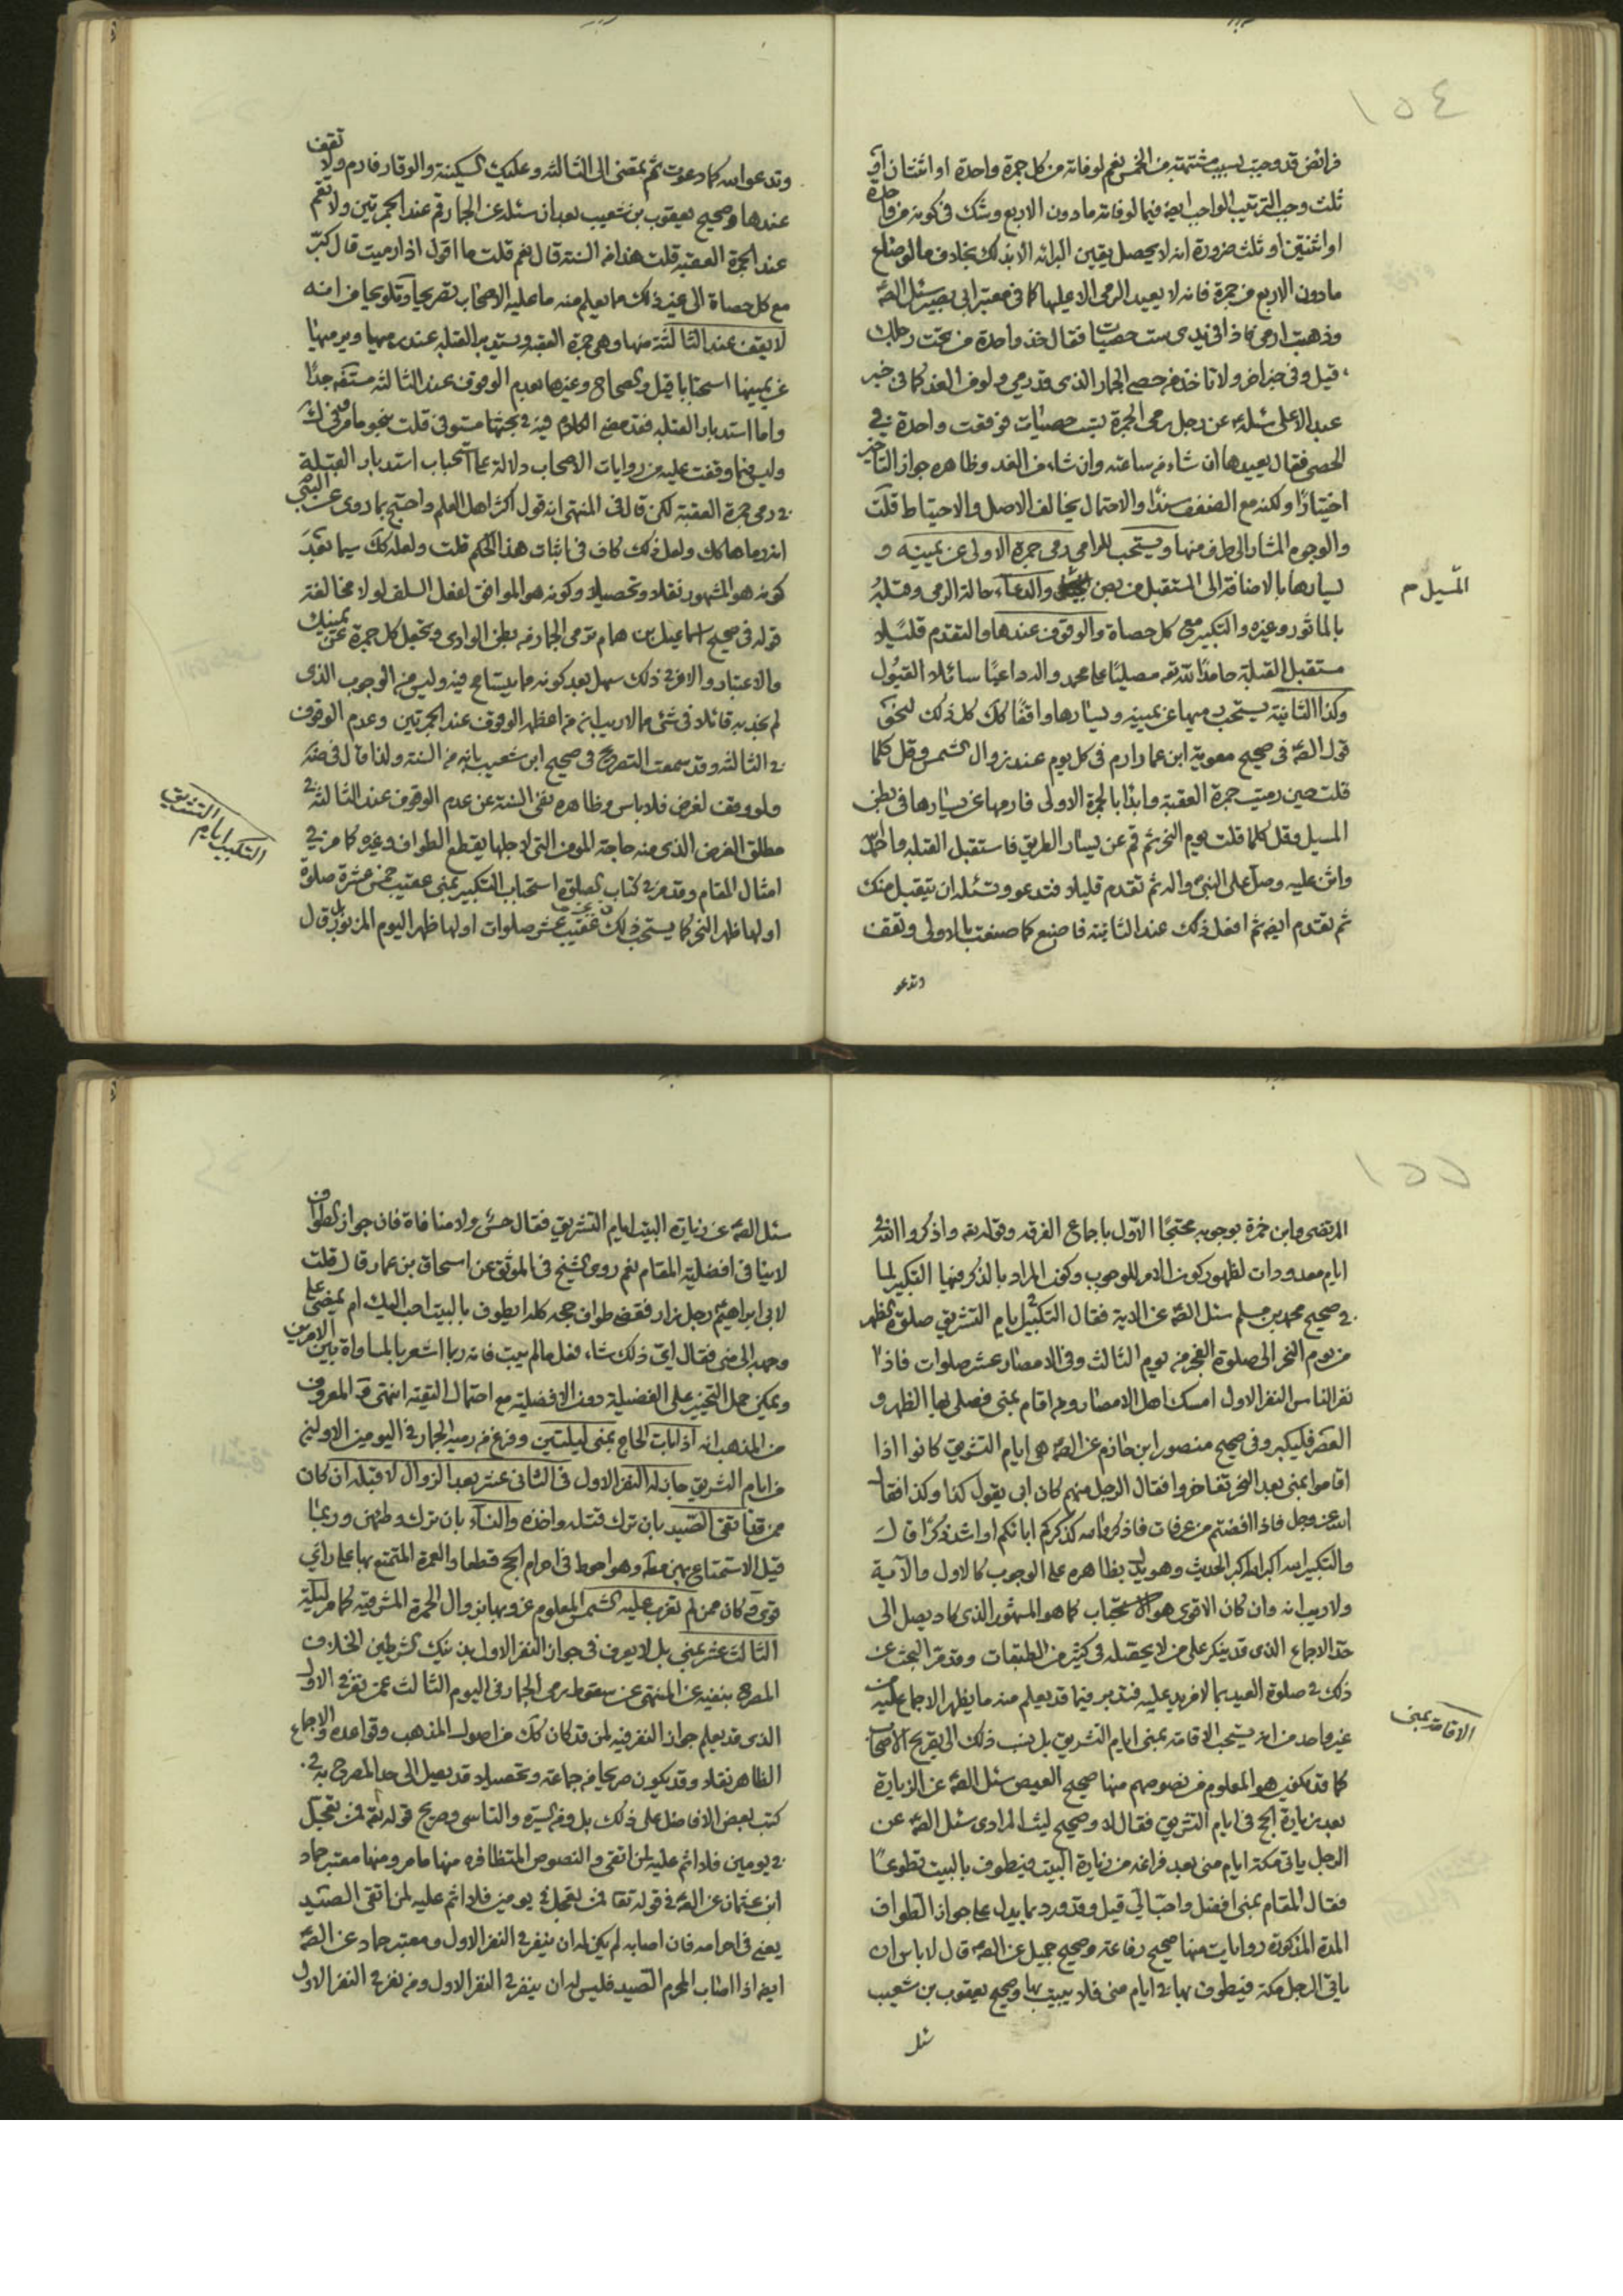 ١٥٤
فرائض قد وجبت بسبب مشتمة من الخمس نعم لو فاته من كل جمرة واحدة او اثنتان او
ثلث وجب الترتيب الواجب ايض فيما لو فاته ما دون الاربع وشك في كونه من واحدة
او اثنتين او ثلث ضرورة انه لا يحصل يقين البرائه الا بذلك بخلاف ما لو ضاع
ما دون الاربع من جمرة فانه لا يعيد الرمى الا عليها كما في معتبر ابى بصير سئل الصه
وذهبت ارمى فاذا في يدى ست حصيات فقال خذ واحدة من تحت رجليك
قيل وفى خبر اخر ولا تاخذ من حصى الجمار الذى قد رمى ولو من الغد كما في خبر
عبد الاعلى سئله عن رجل رمى الجمرة بست حصيات فوقعت واحدة في
الحصى فقال يعيدها ان شاء من ساعته وان شاء من الغد وظاهره جواز التاخير
اختيارا ولكنه مع الضعف سندا والاحتمال يخالف الاصل والاحتياط قلت
والوجوه المشار الى طرف منها ويستحب للرامى رمى جمرة الاولى عن يمينه و
يسارها بالاضافة الى المستقبل من بطن والدعاء حالة الرمى وقبله
المسيل م
بالماثور وغيره والتكبير مع كل حصاة والوقوف عندها والتقدم قليلا
مستقبل القبلة حامدا لله تعه مصليا على محمد واله داعيا سائلا القبول
وكذا الثانية يستحب رميها عن يمينه ويسارها واقفا كك كل ذلك لنحو
قول الصه في صحيح معوية ابن عمار ارم في كل يوم عند زوال الشمس وقل كلما
قلت حين رميت جمرة العقبة وابدا بالجمرة الاولى فارمها عن يسارها في بطن
المسيل وقل كلما قلت يوم النحر ثم قم عن يسار الطريق فاستقبل القبلة واحمد الله
واثن عليه وصل على النبى واله ثم تقدم قليلا فتدعو وتسئله ان يتقبل منك
ثم تقدم ايضه ثم افعل ذلك عند الثانية فاصنع كما صنعت بالاولى وتقف
وتدعو
وتدعو الله كما دعوت ثم تمضى الى الثالثة وعليك السكينة والوقار فارم ولا تقف
عندها وصحيح يعقوب بن شعيب بعد ان سئله عن الجمار قم عند الجمرتين ولا تقم
عند الجمرة العقبه قلت هذا من السنة قال نعم قلت ما اقول اذا رميت قال كبر
مع كل حصاة الى غير ذلك مما يعلم منه ما عليه الاصحاب تصريحا وتلويحا من انه
لا يقف عند الثالثة منها وهى جمرة العقبه ويستدبر القبلة عند رميها ويرميها
عن يمينها استحبابا قيل والصحاح وغيرها بعدم الوقوف عند الثالثة مستفه جدا
واما استدبار القبلة فقد مضى الكلام فيه في بحثها مستوفى قلت بنحو ما مر في ذلك
وليس فيما وقفت عليه من روايات الاصحاب دلالة على استحباب استدبار القبلة
في رمى جمرة العقبة لكن قال في المنتهى انه قول اكثر اهل العلم واحتج بما روى عن النبى
انه رماها كك ولعل ذلك كاف في اثبات هذا الحكم قلت ولعله كك سيما بعد
كونه هو المشهور نقلا وتحصيلا وكونه هو الموافق لفعل السلف لولا مخالفته
قوله في صحيح اسماعيل بن همام ترمى الجمار من بطن الوادى وتجعل كل جمرة عن يمينك
والاعتبار والامر في ذلك سهل بعد كونه مما يتسامح فيه وليس من الوجوب الذى
لم نجد به قائلا في شئ مما لا ريب انه من اعظمها الوقوف عند الجمرتين وعدم الوقوف
في الثالثة وقد سمعت التصريح في صحيح ابن شعيب بانه من السنة ولذا قال في
ولو وقف لغرض فلا باس وظاهره نفى السنة عن عدم الوقوف عند الثالثة في
مطلق الغرض الذى منه حاجة المومن التى لاجلها يقطع الطواف وغيره كما مر في
امثال المقام وقد مر في كتاب الصلوة استحباب التكبير بمنى عقيب خمس عشرة صلوة
التكبير ايام التشريق
اولها ظهر النحر كما يستحب ذلك عقيب عشر صلوات اولها ظهر اليوم المزبور بل قال
١٥٥
المرتضى وابن حمزة بوجوبه محتجا الاول باجماع الفرقه وقوله تعه واذكروا الله في
ايام معدودات لظهور كون الامر للوجوب وكون المراد بالذكر فيها التكبير لما
في صحيح محمد بن مسلم سئل الصه عن الاية فقال التكبير في ايام التشريق صلوة الظهر
من يوم النحر الى صلوة الفجر من يوم الثالث وفى الامصار عشر صلوات فاذا
نفر الناس النفر الاول امسك اهل الامصار ومن اقام بمنى فصلى بها الظهر و
العصر فليكبر وفى صحيح منصور ابن حازم عن الصه هى ايام التشريق كانوا اذا
اقاموا بمنى بعد النحر تفاخروا فقال الرجل منهم كان ابى يقول كذا وكذا فقال
الله عز وجل فاذا افضتم من عرفات فاذكروا الله كذكركم اباءكم او اشد ذكرا قال
والتكبير الله اكبر الله اكبر الحديث وهو يدل بظاهره على الوجوب كالاول والاية
ولا ريب انه وان كان الاقوى هو الاستحباب كما هو المشهور الذى كاد يصل الى
حد الاجماع الذى قد ينكر على من لا يحصله في كثير من الطبقات وقد مر البحث عن
ذلك في صلوة العيد بما لا مزيد عليه فتدبر فيما قد يعلم منه ما يظهر الاجماع عليه من
غير واحد من انه يستحب الاقامة بمنى ايام التشريق بل ينسب ذلك الى تصريح الاصحاب
الاقامة بمنى
كما قد يكون هو المعلوم من نصوصهم منها صحيح العيص سئل الصه عن الزيارة
بعد زيارة الحج في ايام التشريق فقال لا وصحيح ليث المرادى سئل الصه عن
الرجل ياتى مكة ايام منى بعد فراغه من زيارة البيت فيطوف بالبيت تطوعا
فقال المقام بمنى افضل واحب الى قيل وقد ورد بما يدل على جواز الطواف
المدة المذكورة روايات منها صحيح رفاعة وصحيح جميل عن الصه قال لا باس ان
ياتى الرجل مكة فيطوف بها في ايام منى فلا يبيت بها وصحيح يعقوب بن شعيب
سئل
سئل الصه عن زيارة البيت ايام التشريق فقال حسن ولا منافاة فان جواز الطواف
لا ينافى افضلية المقام نعم روى الشيخ في الموثق عن اسحاق بن عمار قال قلت
لابى ابراهيم رجل زار فقضى طواف حجه كله ايطوف بالبيت احب اليك ام يمضى على
وجهه الى منى فقال اى ذلك شاء فعل ما لم يبت فانه ربما اشعر بالمساواة بين الامرين
ويمكن حمل التخيير على الفضيلة دون الافضلية مع احتمال التقية انتهى ثم المعروف
من المذهب انه اذا بات الحاج بمنى ليلتين وفرغ من رمى الجمار في اليومين الاولين
من ايام التشريق جاز له النفر الاول في الثانى عشر بعد الزوال لا قبله ان كان
ممن قد اتقى الصيد بان ترك قتله واخذه والنساء بان ترك وطئهن وربما
قيل الاستمتاع بهن مطه وهو احوط في احرام الحج قطعا والعمرة المتمتع بها على راى
قوى وكان ممن لم تغرب عليه الشمس المعلوم غروبها بزوال الحمرة المشرقيه كما مر ليلة
الثالث عشر بمنى بل لا يعرف في جواز النفر الاول بذينك الشرطين الخلاف
المصرح بنفيه عن المنتهى عن سقوط رمى الجمار في اليوم الثالث عمن نفر في الاول
الذى قد يعلم جواز النفر فيه لمن قد كان كك من اصول المذهب وقواعده والاجماع
الظاهر نقلا وقد يكون صريحا من جماعة وتحصيلا قد يصل الى حد المصرح به في
كتب بعض الافاضل على ذلك بل ومن السيرة والتاسى وصريح قوله تعه فمن تعجل
في يومين فلا اثم عليه لمن اتقى والنصوص المتظافره منها ما مر ومنها معتبر حماد
ابن عثمان عن الصه في قوله تعا فمن تعجل في يومين فلا اثم عليه لمن اتقى الصيد
يعنى في احرامه فان اصابه لم يكن له ان ينفر في النفر الاول ومعتبر حماد عن الصه
ايضه اذا اصاب المحرم الصيد فليس له ان ينفر في النفر الاول ومن نفر في النفر الاول